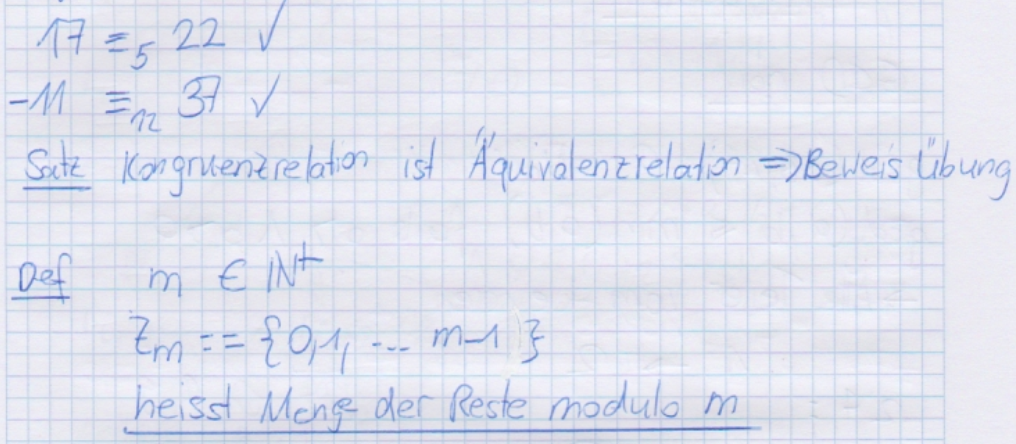 17 ≡₅ 22 ✓
-11 ≡₁₂ 37 ✓
Satz Kongruenzrelation ist Äquivalenzrelation ⇒ Beweis Übung
Def m ∈ ℕ⁺
ℤm := {0,1, ... m-1}
heisst Menge der Reste modulo m